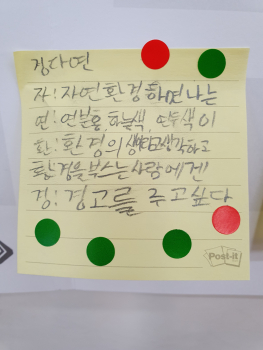 김다연
자: 자연환경하면 나는
연: 연분홍 하늘색, 연두색이
환: 환경의 생각하고
환경을 부스는 사람에게
경: 경고를 주고싶다
Post-it